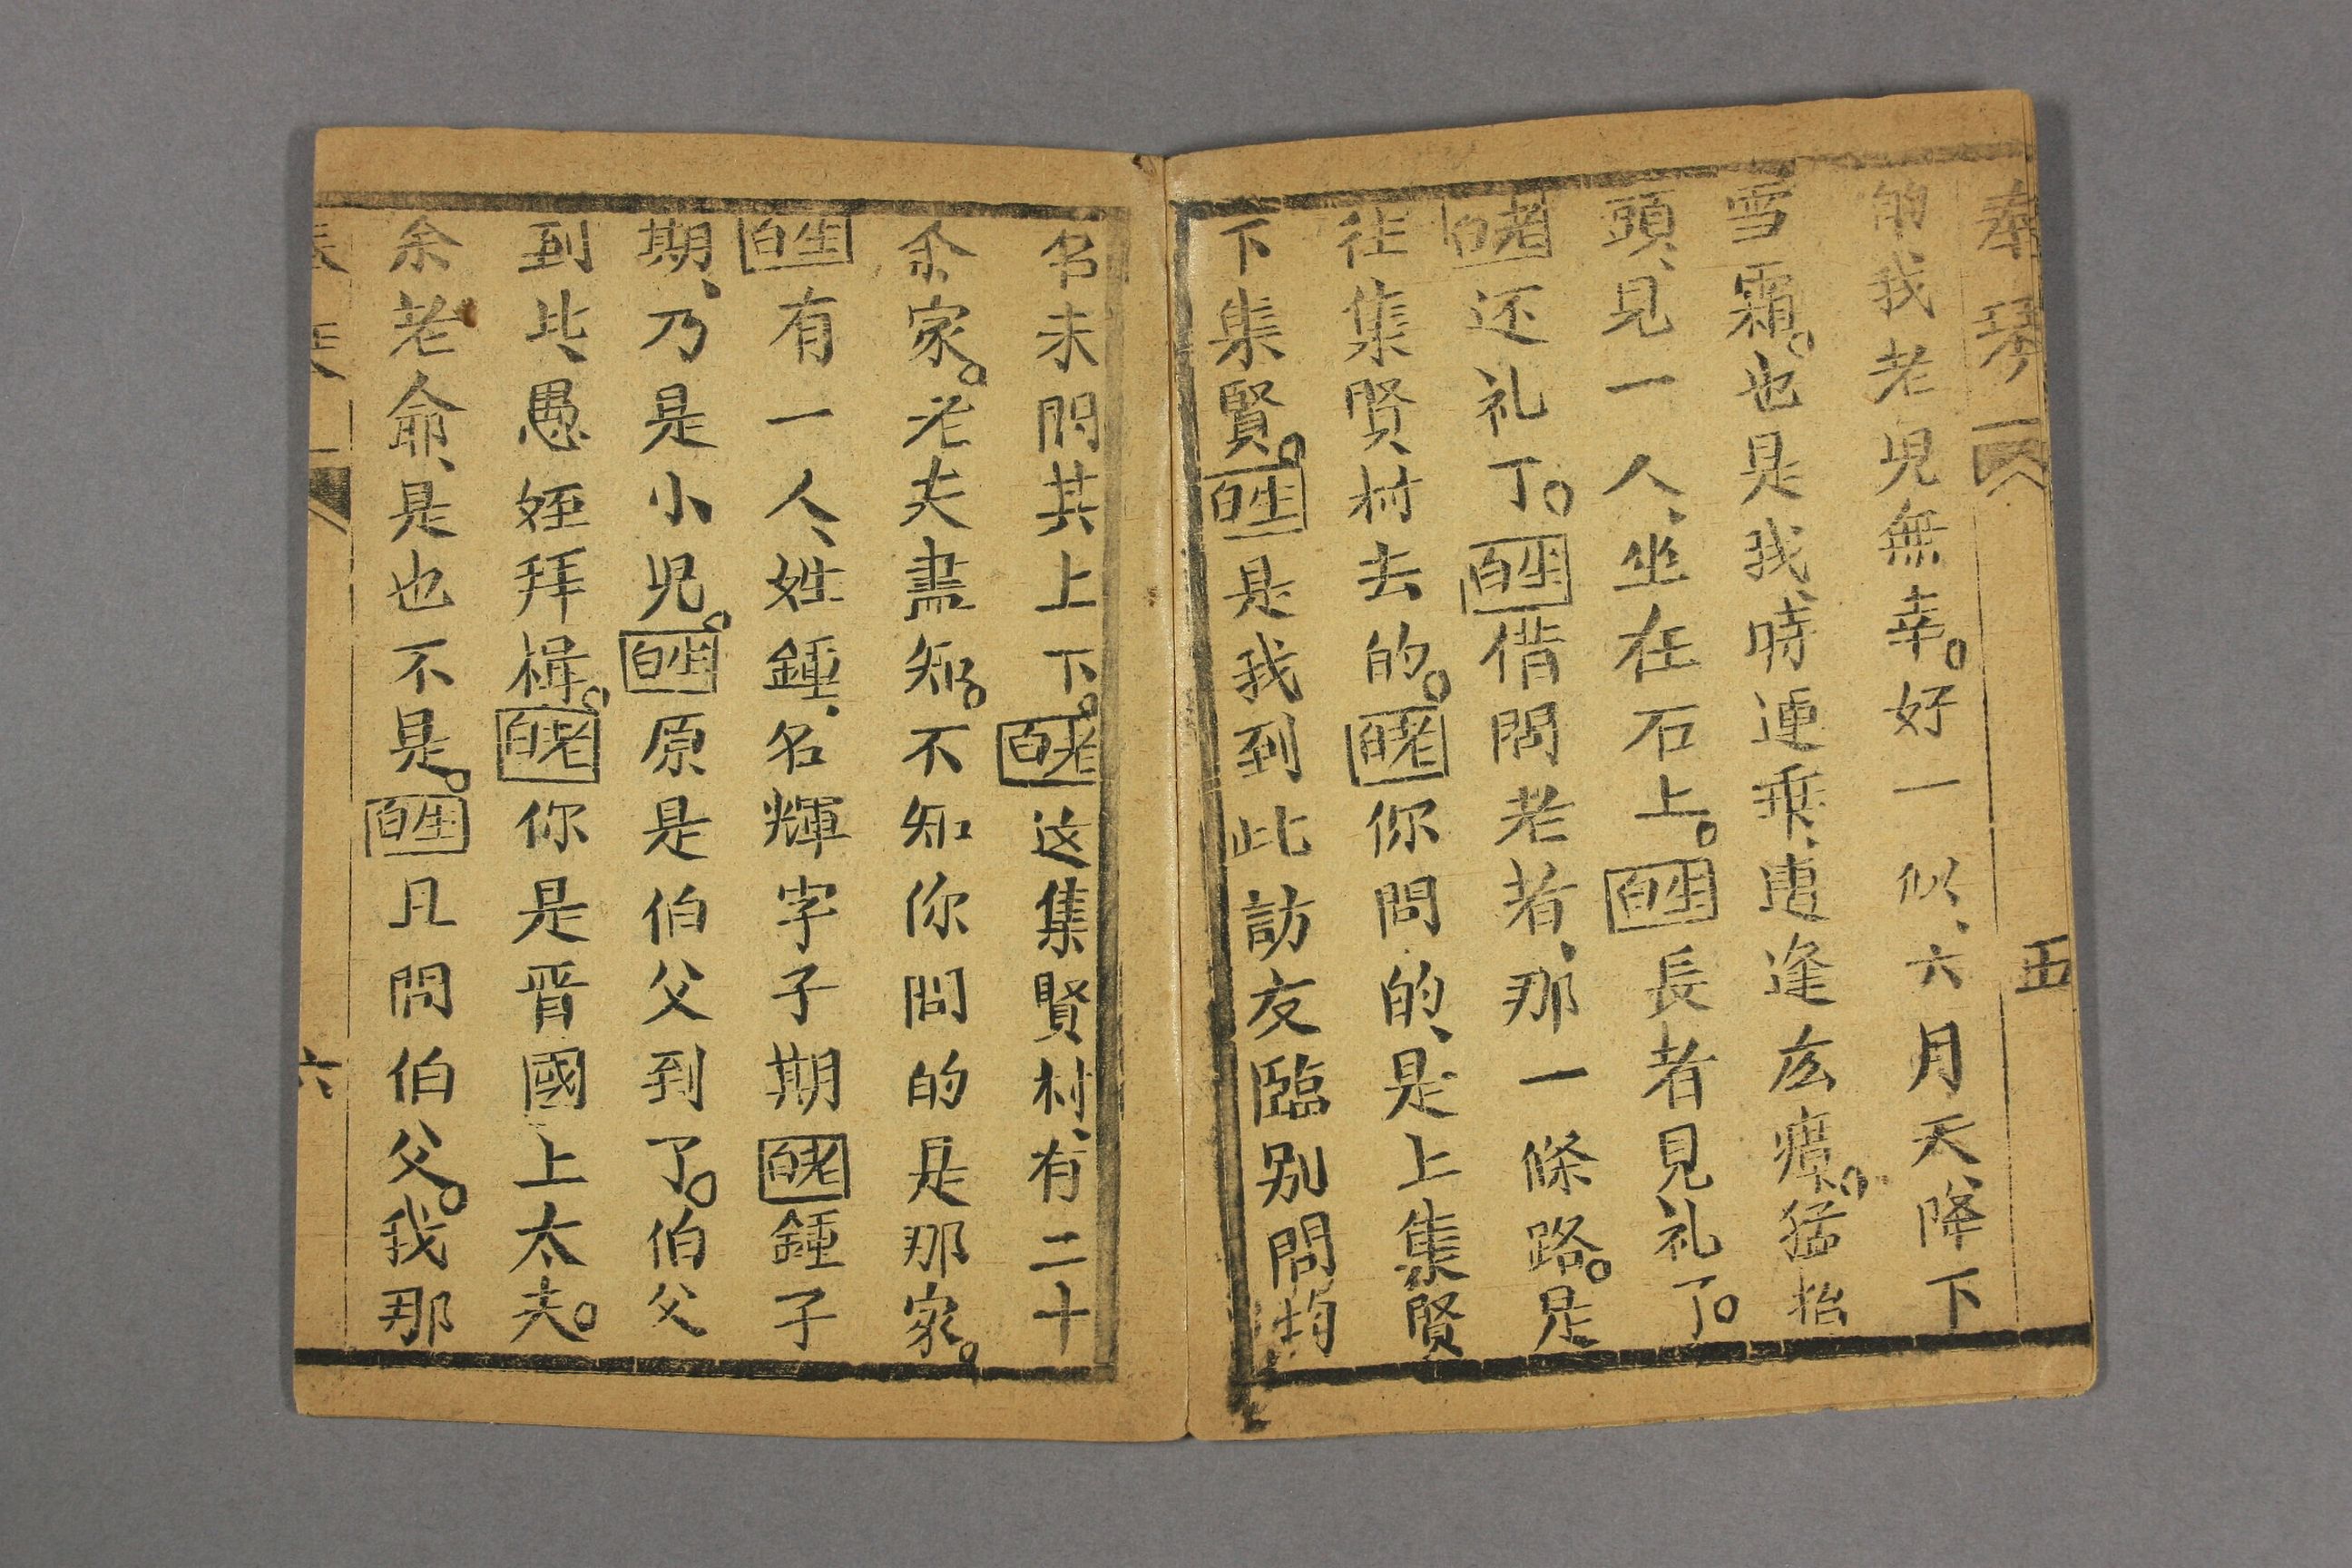 奉琴 五
的我老児無幸。好一似、六月天、降下
雪霜。也是我、時運乗、惠逢広瘴。猛抬
頭、見一人、坐在石上。生白長者見礼了。
老白还礼了。生白借問老者、那一條路。是
往集賢村去的。老白你問的、是上集賢
下集賢。生白是我到此訪友臨别問均
名未問其上下。老白这集賢村、有二十
余家。老夫盡知。不知你問的是那家。
生白有一人、姓鍾、名輝字子期老白鍾子
期、乃是小児。生白原是伯父到了。伯父
到此、愚姪拜楫。老白你是晋國上太夫。
余老爺、是也不是。生白且問伯父。我那
六